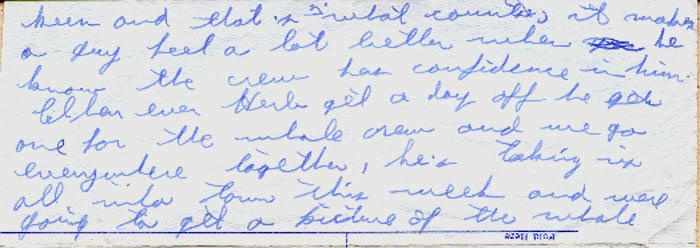 keen and that's what counts, it makes
a guy feel a lot better when he
know the crew has confidence in him.
When ever Herb get a day off he gets
one for the whole crew and we go
everywhere together, he's taking us
all into town this week and were
going to get a picture of the whole